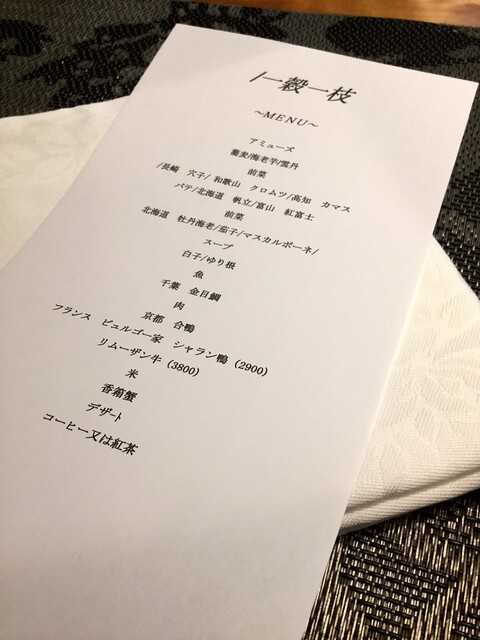 /一穀一枝
～MENU～
アミューズ
蕎麦/海老芋/雲丹
前菜
/長崎 穴子/ 和歌山 クロムツ/高知 カマス
パテ/北海道 帆立/富山 紅富士
前菜
北海道 牡丹海老/茄子/マスカルポーネ/
スープ
白子/ゆり根
魚
千葉 金目鯛
肉
京都 合鴨
フランス ビュルゴー家 シャラン鴨 (2900)
リムーザン牛 (3800)
米
香箱蟹
デザート
コーヒー又は紅茶